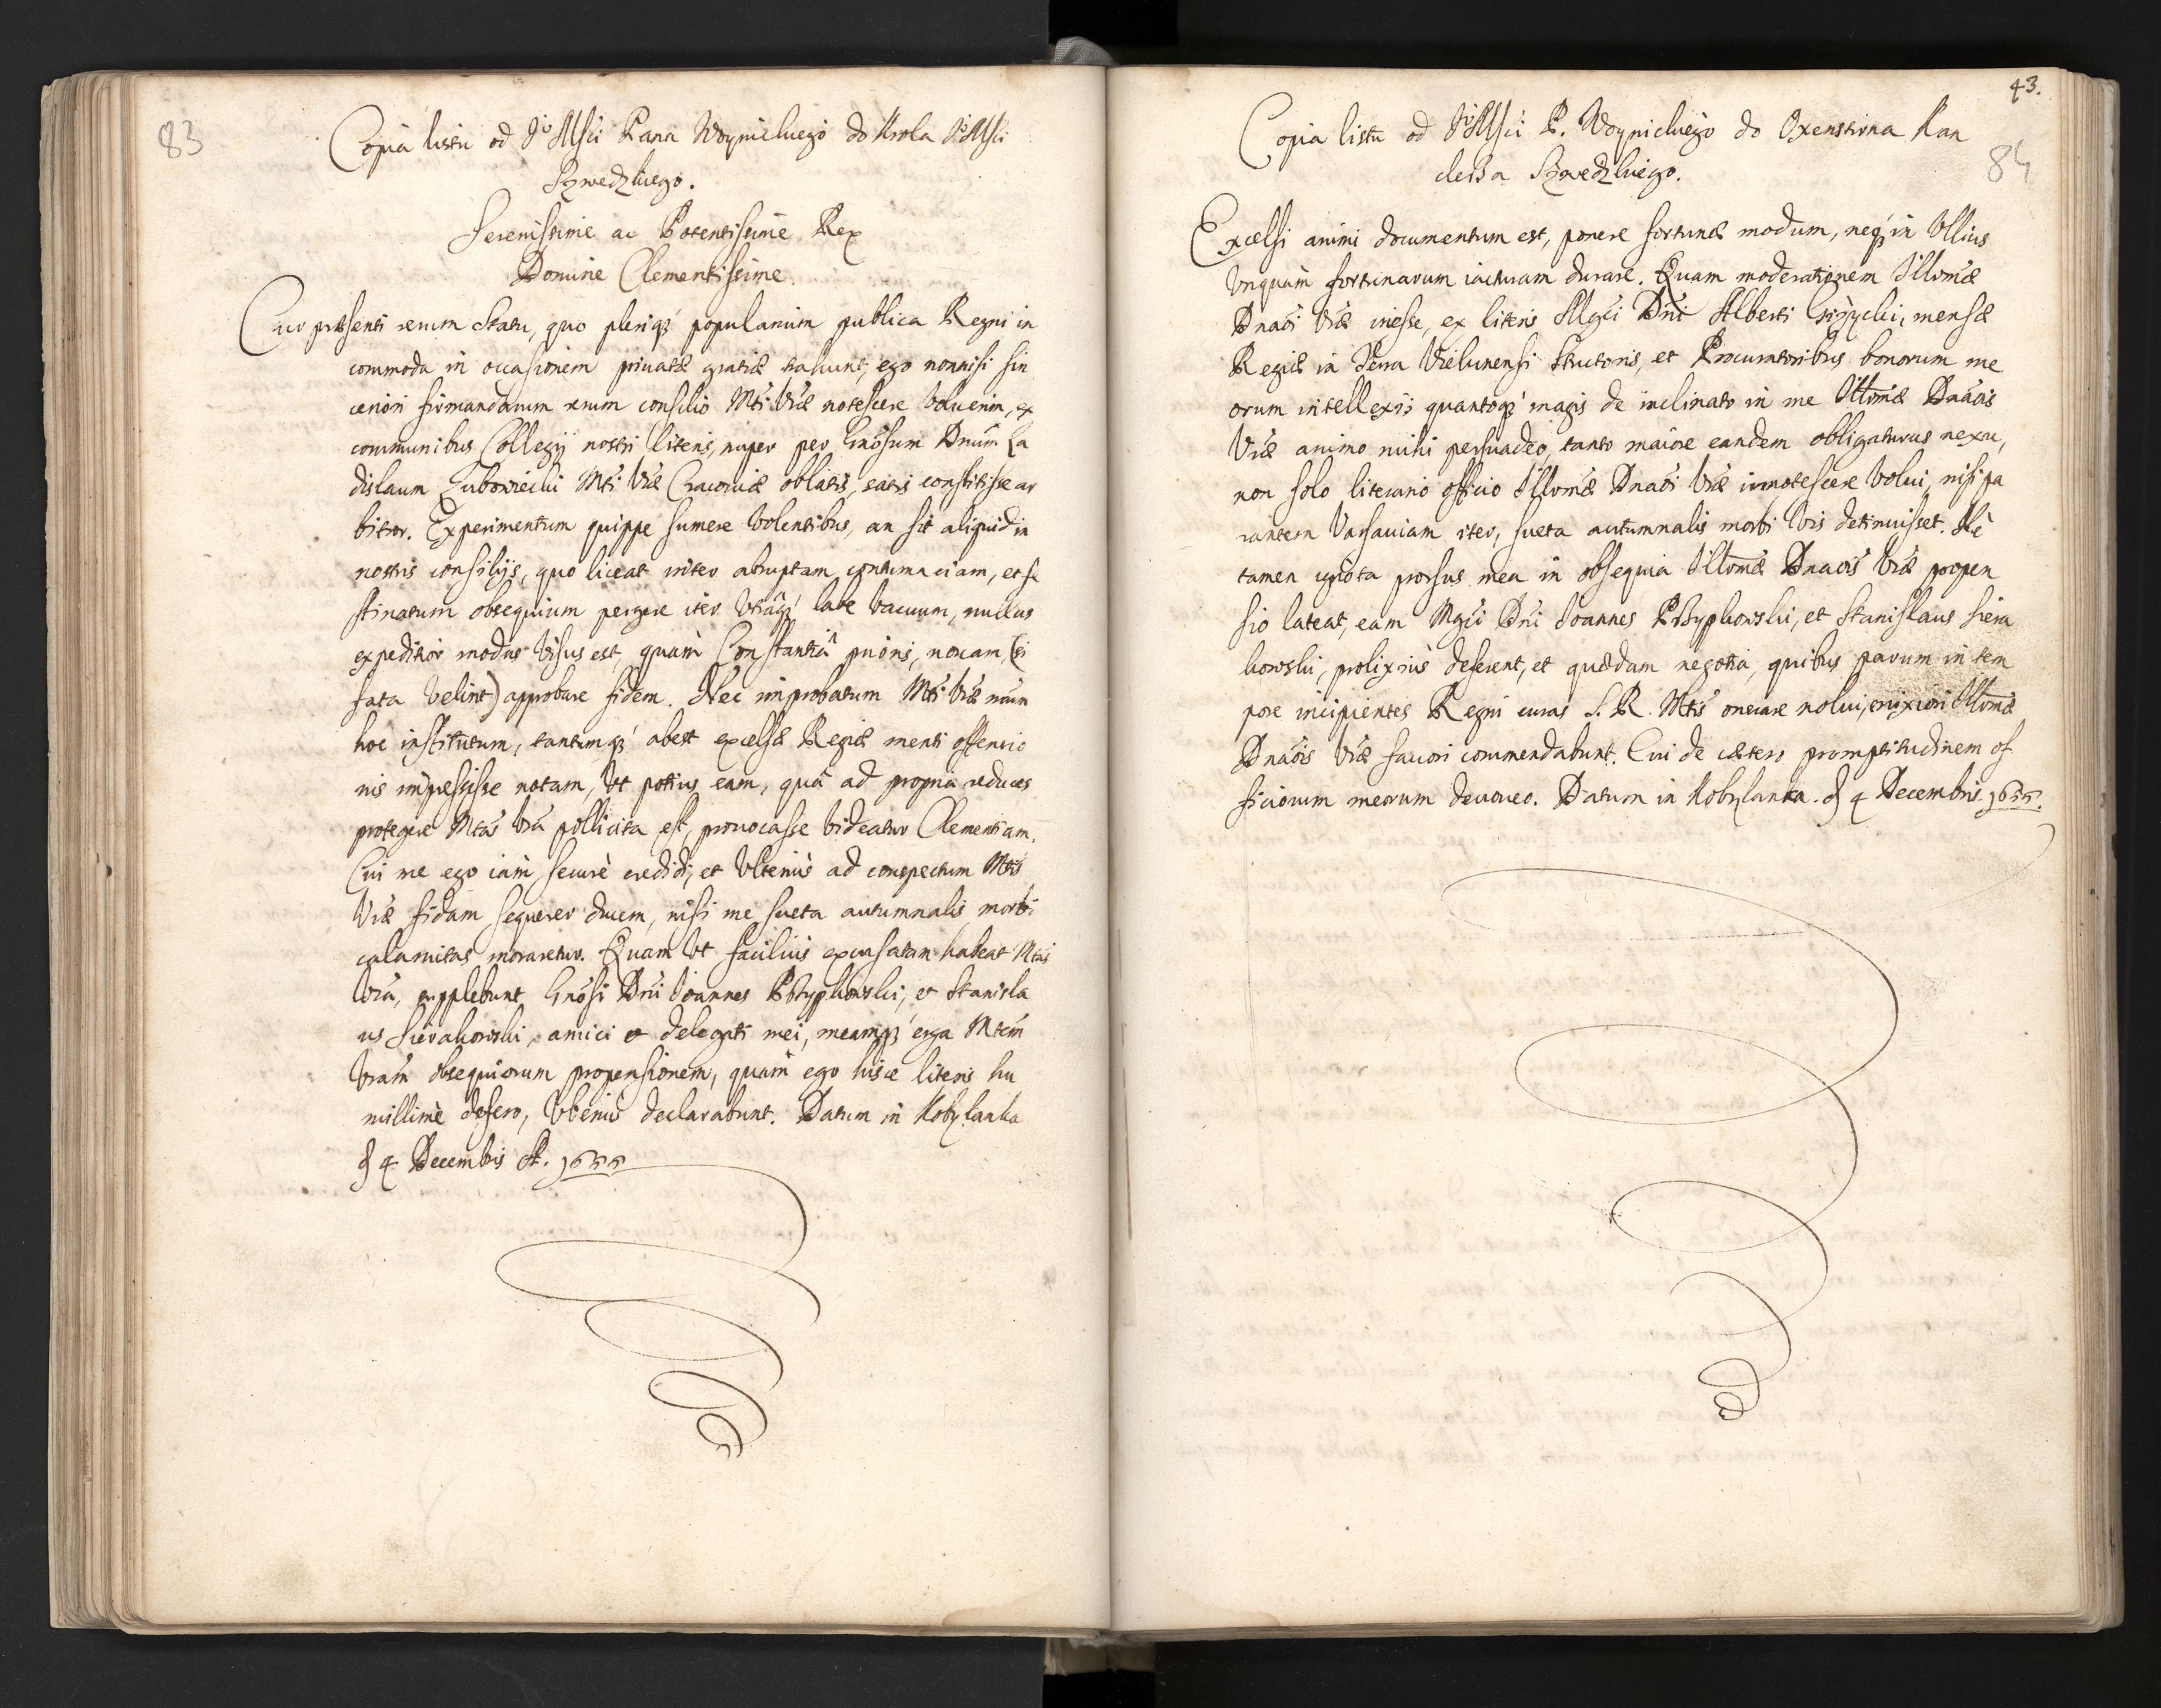 83
Copia listu od Jº Msci Pana Woynickiego do Krola Jº Msci
Szwedzkiego.
Serenissime ac Potentissime Rex
Domine Clementissime.
Cur præsenti rerum Statu, quo pleriq́ popularium publica Regni in
commoda in occasionem privatæ gratiæ trahunt, ego nonnisi sin
ceriori firmandarum rerum consilio Mti Vræ notescere voluerim, ex
communibus Collegij nostri literis, nuper per Gnosum Dnum La
dislaum Lubowiecki Mti Vræ Cracoviæ oblatis, satis constitisse ar
bitror. Experimentum quippe sumere volentibus, an sit aliquid in
nostris consilijs, quo liceat inter abruptam contumaciam, et fe
stinatum obsequium pergere iter utrâq́ late vacuum, nullus
expeditior modus visus est, quàm Constantiâ prioris, novam, (si
fata velint) approbare fidem. Nec improbatum Mti Vræ meum
hoc institutum, tantumq́ abest excelsæ Regiæ menti offensio
nis impressisse notam, ut potius eam, quâ ad propria reduces
protegere Mtas Vra pollicita est, provocasse videatur Clementiam.
Cui me ego iam securè credidi, et ulterius ad conspectum Mtis
Vræ fidam sequerer ducem, nisi me sueta autumnalis morbi
calamitas moraretur. Quam ut facilius excusatam habeat Mtas
Vra, supplebunt Gnosi Dni Joannes Przypkowski, et Stanisla
us Sierakowski, amici et delegati mei, meamq́ erga Mtem
Vram obsequiorum propensionem, quam ego hisce literis hu
millimè defero, ulterius declarabunt. Datum in Kobylanka
d 4 Decembris A. 1655
43.
84
Copia listu od Jº Msci P. Woynickiego do Oxenstirna Kan
clerza Szwedzkiego.
Excelsi animi documentum est, ponere fortunæ modum, neq́ in ullius
unquam fortunarum iacturam durare. Quam moderationem Illvmæ
Dnaoi Vræ inesse, ex literis Mgci Dni Alberti Giżycki, mensæ
Regiæ in Terra Vielunensi Structoris, et Procuratoribus bonorum me
orum intellexi; quantoq́ magis de inclinato in me Illvmæ Dnaois
Vræ animo mihi persuadeo, tanto maiore eandem obligaturus nexu,
non solo literario officio Illvmæ Dnaoi Vræ innotescere volui, nisi pa
rantem Varsaviam iter, sueta autumnalis morbi vis detinuisset. Nè
tamen ignota prorsus mea in obsequia Illvmæ Dnaois Vræ propen
sio lateat, eam Mgci Dni Joannes Przypkowski, et Stanislaus Siera
kowski, prolixius deferent, et quædam negotia, quibus parum in tem
pore incipientes Regni curas S. R. Mtis onerare nolui, enixiori Illvmæ
Dnaois Vræ favori commendabunt. Cui de cætero promptitudinem of
ficiorum meorum devoveo. Datum in Kobylanka. d 4 Decembris 1655.